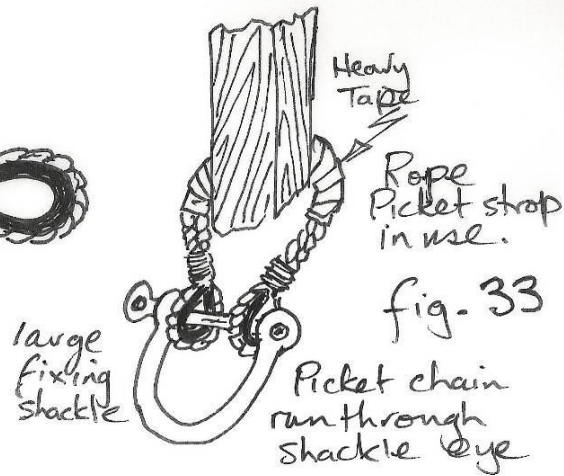 Heavy
Tape
Rope
Picket strop
in use.
fig. 33
large
fixing
shackle
Picket chain
run through
shackle eye